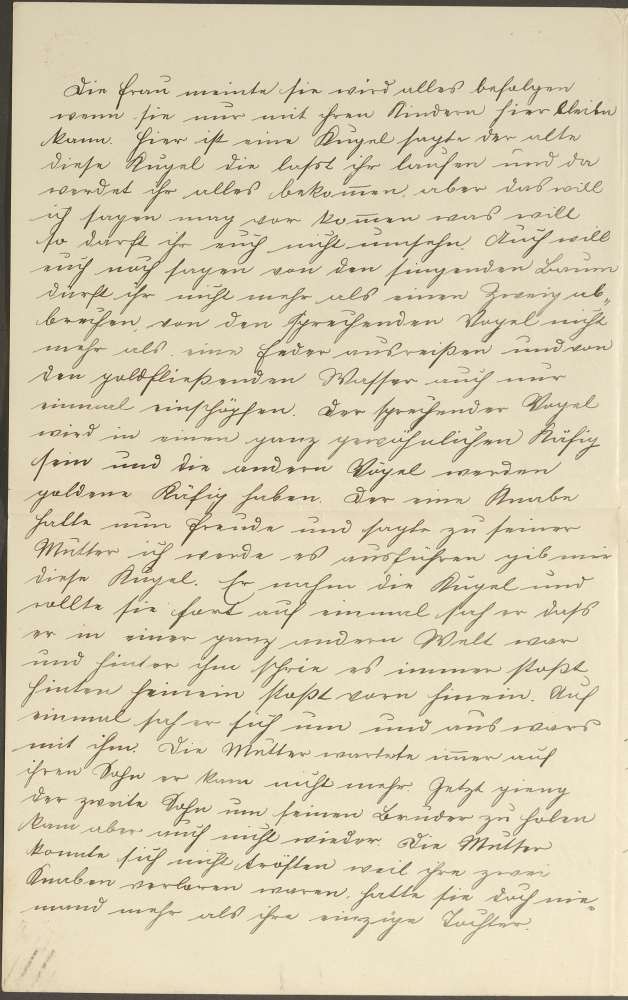 Die Frau meinte sie wird alles befolgen
wenn sie nur mit ihren Kindern hier bleiben
kann. Hier ist eine Kugel sagte der alte
diese Kugel die lasst ihr laufen und da
werdet ihr alles bekom̄en, aber das will
ich sagen mag vor kom̄en was will
so darft ihr euch nicht umsehn. Auch will
euch noch sagen von den singenden Baum
dürft ihr nicht mehr als einen Zweig ab„
brechen, von den sprechenden Vogel nicht
mehr als eine Feder ausreißen und von
den goldfließenden Wasser auch nur
einmal einschöpfen. Der sprechender Vogel
wird in einen ganz gewöhnlichen Käfig
sein und die andern Vögel werden
goldene Käfig haben. Der eine Knabe
hatte nun Freude und sagte zu seiner
Mutter ich werde es ausführen gib mir
diese Kugel. Er nahm die Kugel und
rollte sie fort auf einmal sah er dass
er in einer ganz andern Welt war
und hinter ihm schrie es immer stoßt
hinten heinein stoßt vorn hinein. Auf
einmal sah er sich um und aus wars
mit ihm. Die Mutter wartete im̄er auf
ihren Sohn er kam nicht mehr. Jetzt gieng
der zweite Sohn um seinen Bruder zu holen
kam aber auch nicht wieder. Die Mutter
konnte sich nicht trösten weil ihre zwei
Knaben verloren waren, hatte sie doch nie„
mand mehr als ihre einzige Tochter.